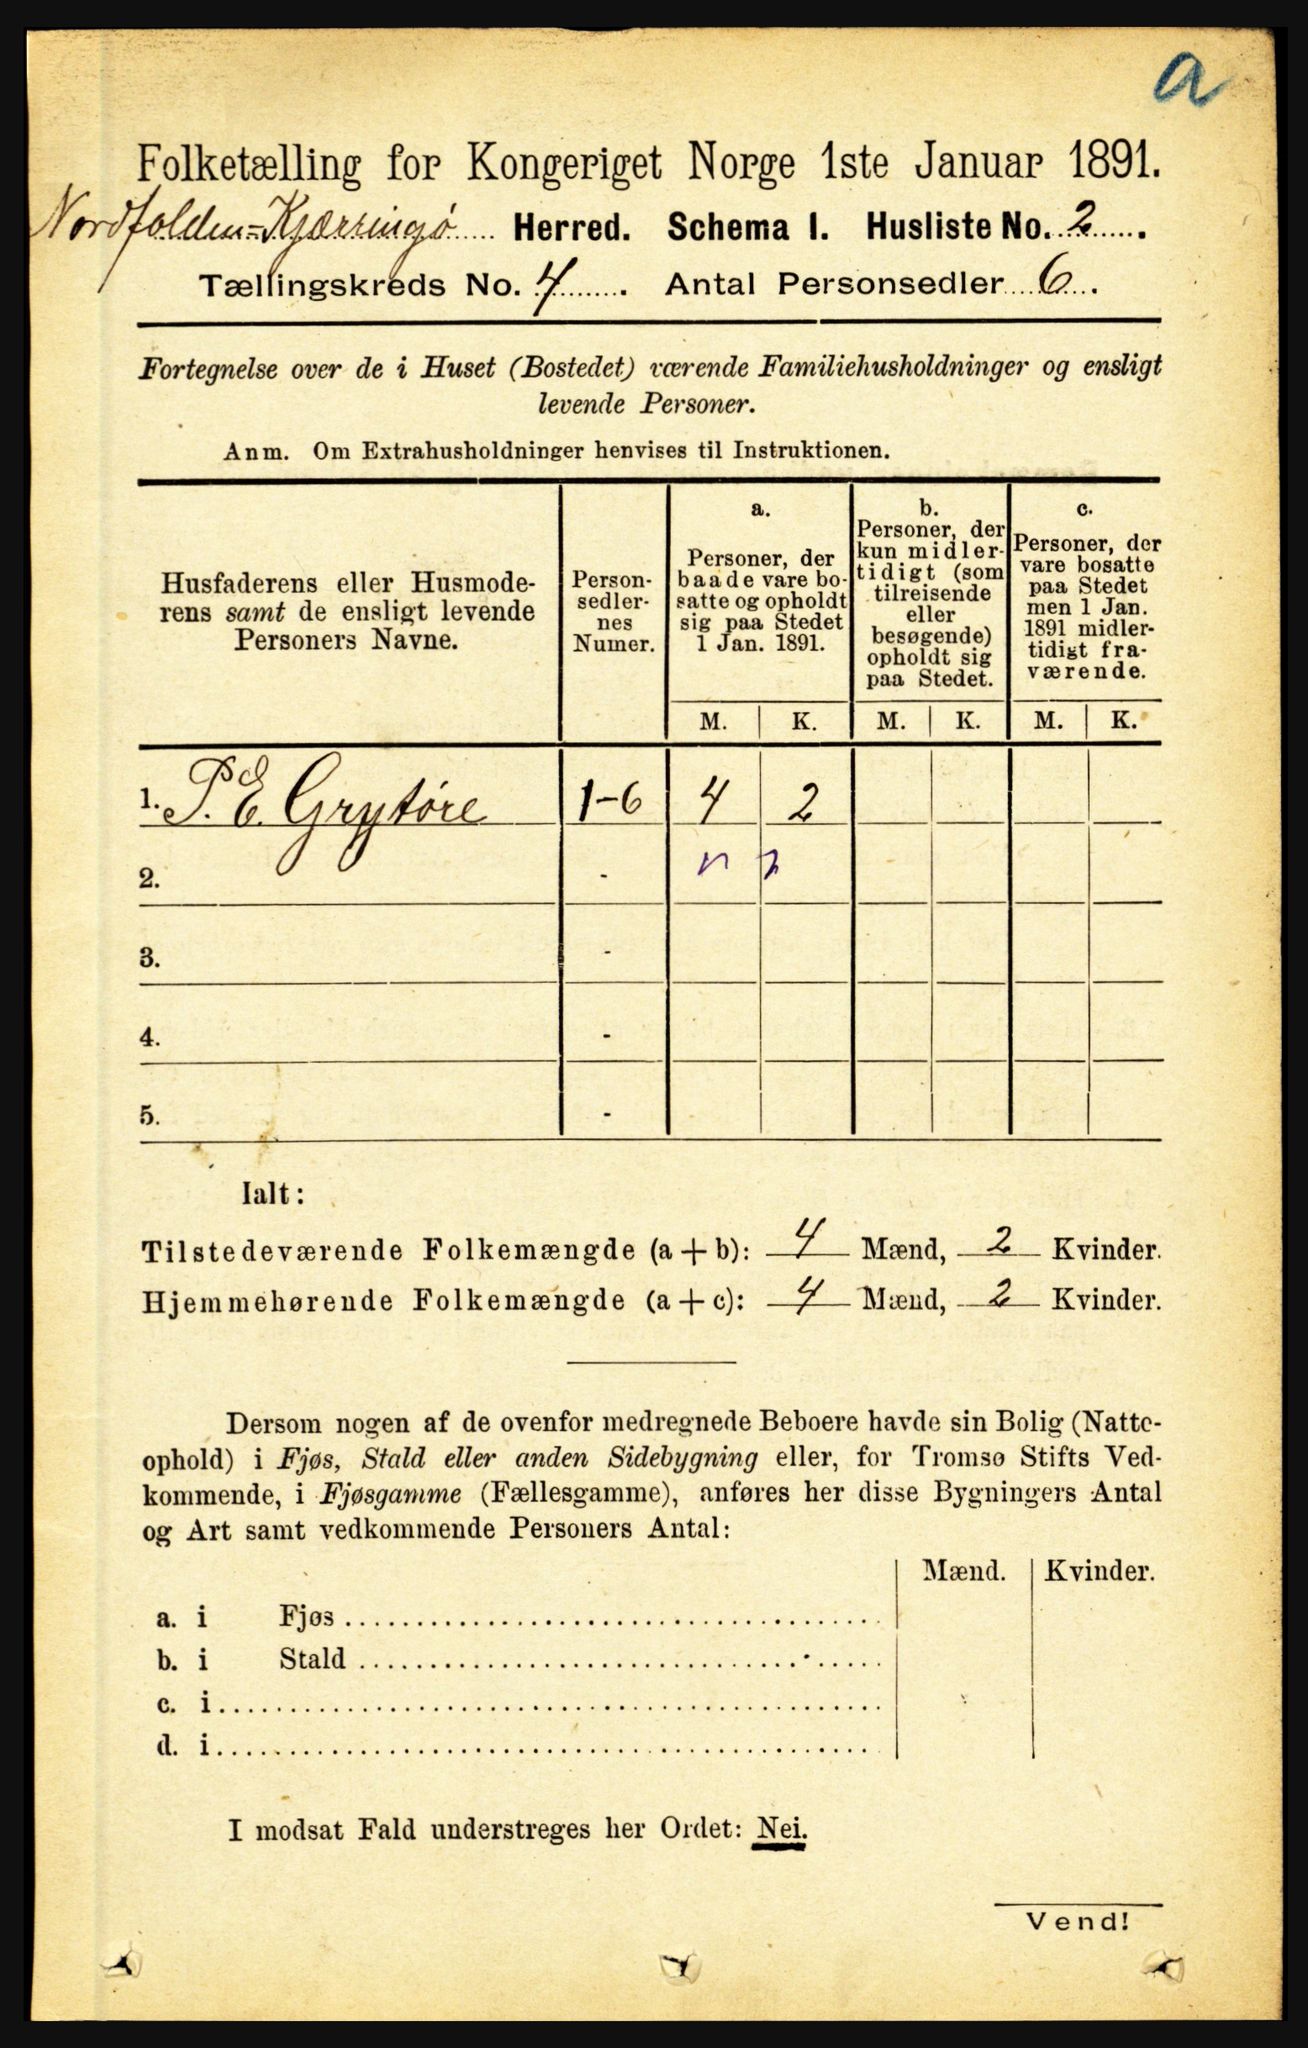 a
Folketælling for Kongeriget Norge 1ste Januar 1891.
Nordfolden=Kjærringø Herred. Schema I. Husliste No. 2.
Tællingskreds No. 4. Antal Personsedler 6.
Fortegnelse over de i Huset (Bostedet) værende Familiehusholdninger og ensligt
levende Personer.
Anm. Om Extrahusholdninger henvises til Instruktionen.
Husfaderens eller Husmode-
rens samt de ensligt levende
Personers Navne.
Person-
sedler-
nes
Numer.
a.
Personer, der
baade vare bo-
satte og opholdt
sig paa Stedet
1 Jan. 1891.
b.
Personer, der
kun midler-
tidigt (som
tilreisende
eller
besøgende)
opholdt sig
paa Stedet.
c.
Personer, der
vare bosatte
paa Stedet
men 1 Jan.
1891 midler-
tidigt fra-
værende.
M. K. M. K. M. K.
1. P. E. Grytøre 1-6 4 2
2. -
3. -
4. -
5. -
Ialt:
Tilstedeværende Folkemængde (a + b): 4 Mænd, 2 Kvinder.
Hjemmehørende Folkemængde (a + c): 4 Mænd, 2 Kvinder.
Dersom nogen af de ovenfor medregnede Beboere havde sin Bolig (Natte-
ophold) i Fjøs, Stald eller anden Sidebygning eller, for Tromsø Stifts Ved-
kommende, i Fjøsgamme (Fællesgamme), anføres her disse Bygningers Antal
og Art samt vedkommende Personers Antal:
Mænd. Kvinder.
a. i Fjøs
b. i Stald
c. i
d. i
I modsat Fald understreges her Ordet: Nei.
Vend!